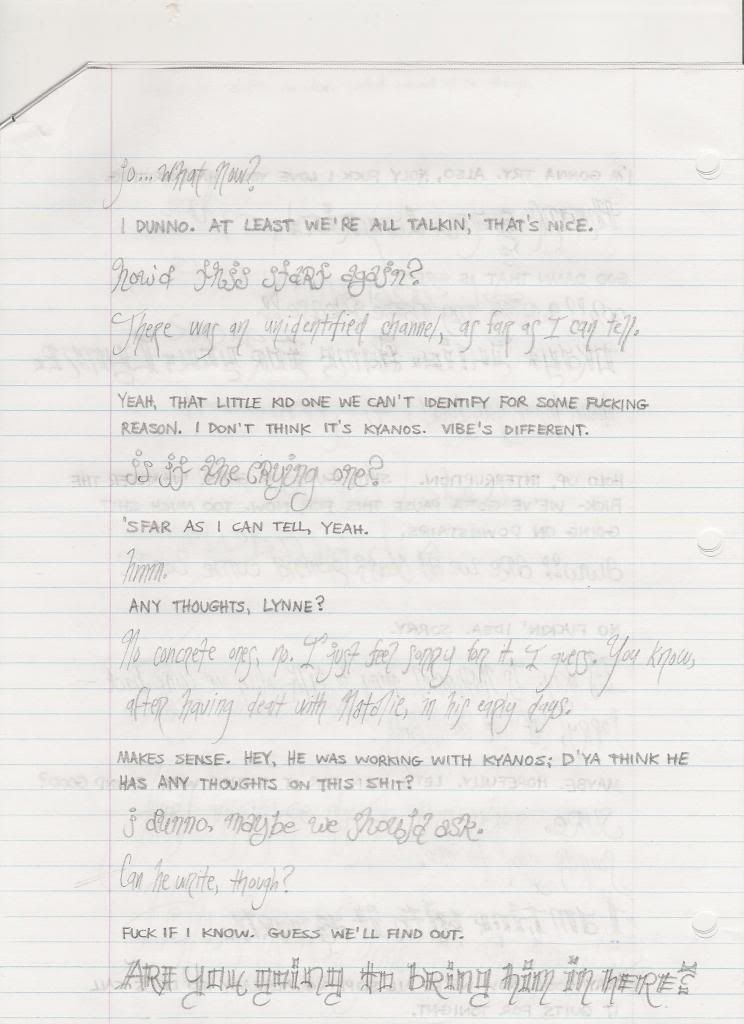 So... What Now?
I DUNNO. AT LEAST WE'RE ALL TALKIN', THAT'S NICE.
how'd this start again?
There was an unidentified channel, as far as I can tell.
YEAH, THAT LITTLE KID ONE WE CAN'T IDENTIFY FOR SOME FUCKING
REASON. I DON'T THINK IT'S KYANOS. VIBE'S DIFFERENT.
is it the crying one?
'SFAR AS I CAN TELL, YEAH.
hmm.
ANY THOUGHTS, LYNNE?
No concrete ones, no. I just feel sorry for it, I guess. You know,
after having dealt with Natalie, in his early days.
MAKES SENSE. HEY, HE WAS WORKING WITH KYANOS; D'YA THINK HE
HAS ANY THOUGHTS ON THIS SHIT?
i dunno, maybe we should ask.
Can he write, though?
FUCK IF I KNOW. GUESS WE'LL FIND OUT.
ARE you going to bring him in HERE?